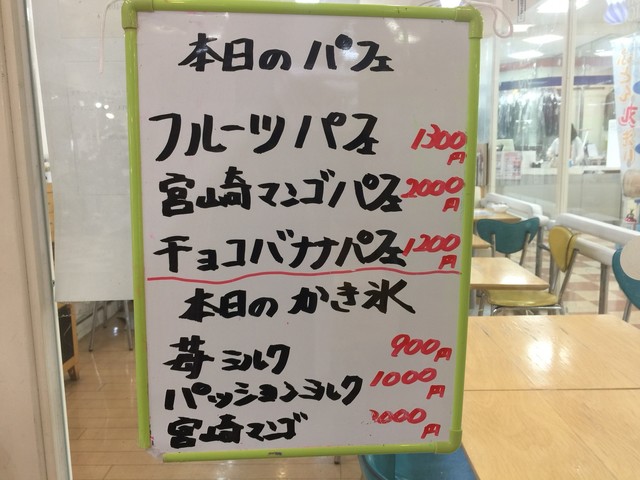 本日のパフェ
フルーツパフェ 1300円
宮崎マンゴパフェ 2000円
チョコバナナパフェ 1200円
本日のかき氷
苺ミルク 900円
パッションミルク 1000円
宮崎マンゴ 円